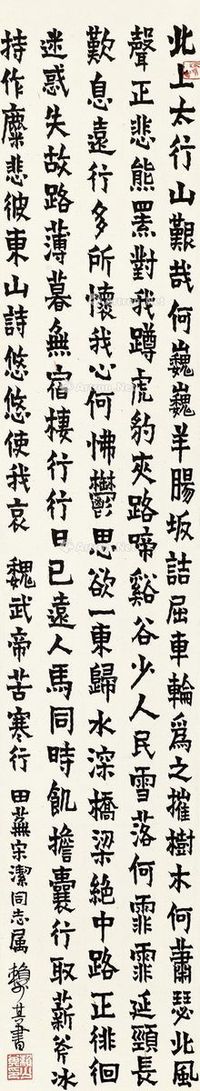 北上太行山艱哉何巍巍羊腸坂詰屈車輪爲之摧樹木何蕭瑟北風
聲正悲熊羆對我蹲虎豹夾路啼谿谷少人民雪落何霏霏延頸長
歎息遠行多所懷我心何怫鬱思欲一東歸水深橋梁絕中路正徘徊
迷惑失故路薄暮無宿棲行行日已遠人馬同時飢擔囊行取薪斧冰
持作糜悲彼東山詩悠悠使我哀 魏武帝苦寒行 田蕪宗潔同志属 賴少其書